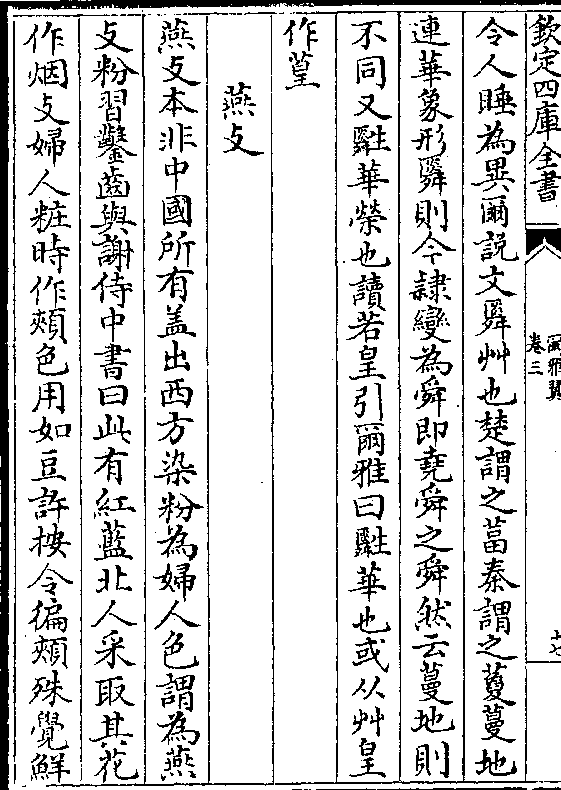 欽定四庫全書
爾雅翼
卷三
十七
令人睡為異爾説文䑞艸也楚謂之葍秦謂之藑蔓地
連華象形䑞則今隷變為舜即堯舜之舜然云蔓地則
不同又䑏華榮也讀若皇引爾雅曰䑏華也或从艸皇
作葟
燕支
燕支本非中國所有盖出西方染粉為婦人色謂為燕
支粉習鑿齒與謝侍中書曰此有紅藍北人采取其花
作烟支婦人粧時作頰色用如豆許按令徧頰殊覺鮮